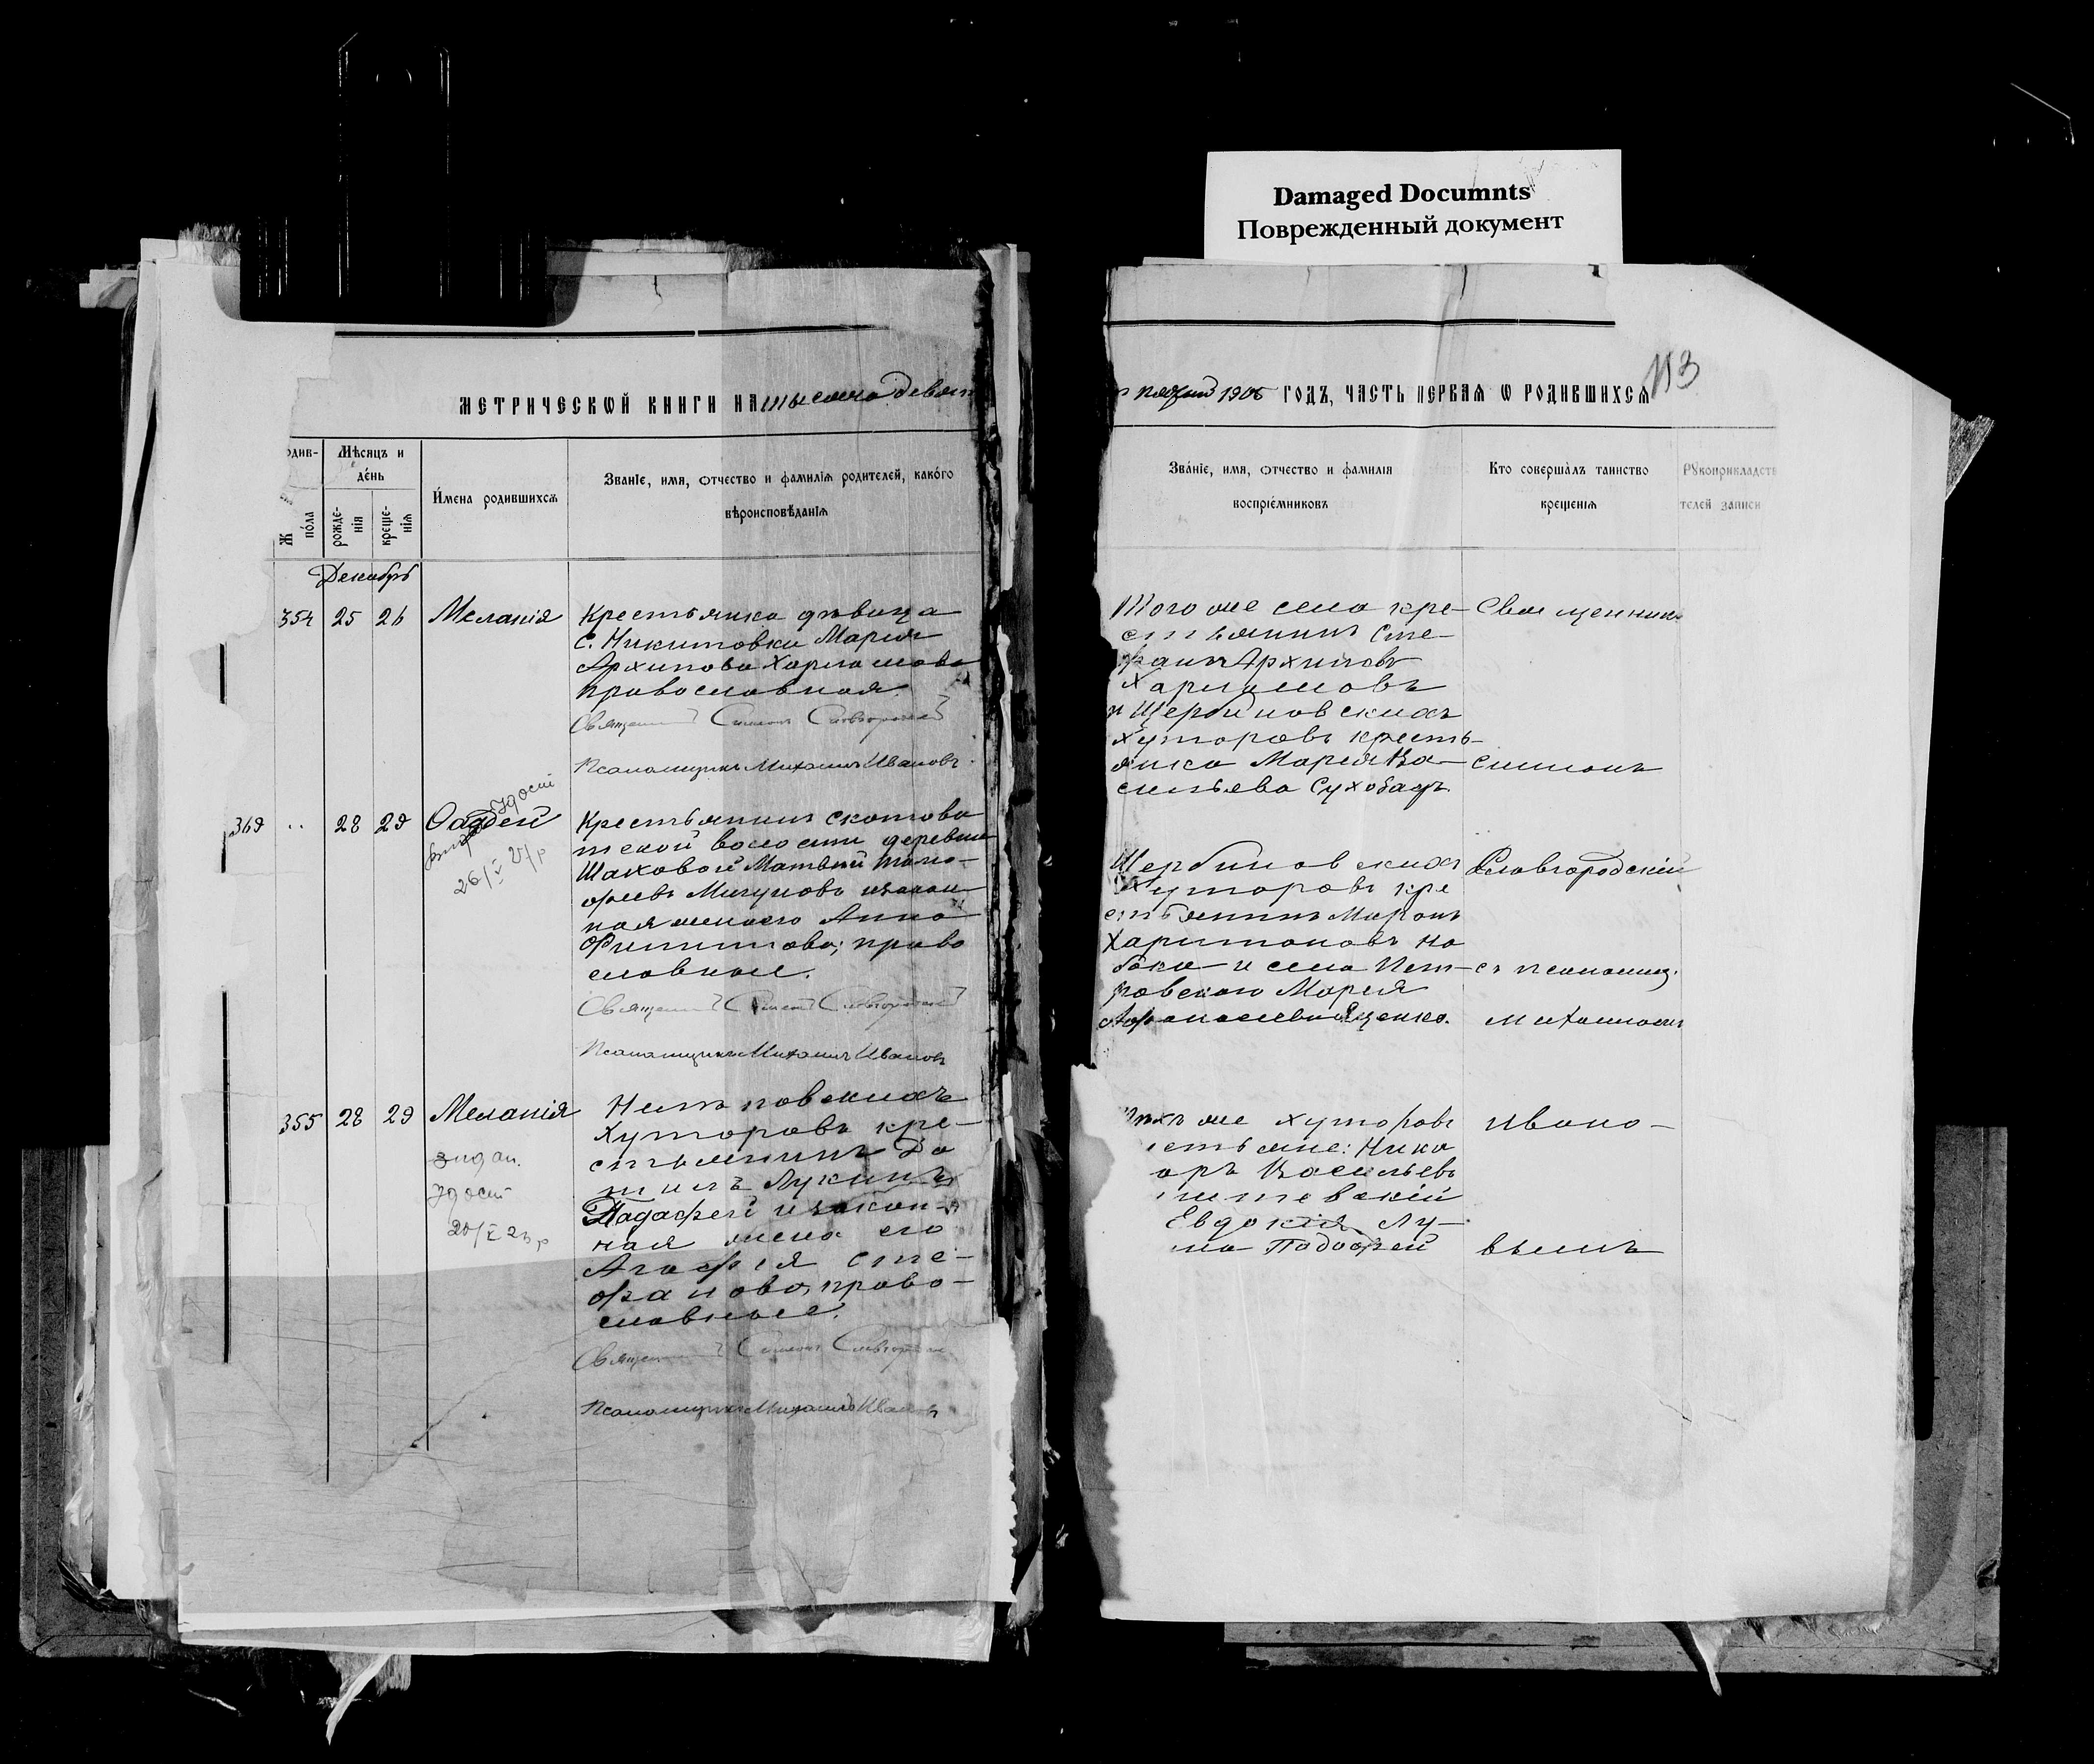 Damaged Documnts
Поврежденный документ
113
МЕТРИЧЕСКѠЙ КНИГИ НА тысяча девят
1906 ГОДЪ, ЧАСТЬ ПЕРВАЯ Ѡ РОДИВШИХСЯ
одив-
Ж пола
Мѣсяцъ и день
рожде-нія
креще-нія
Имена родившихся
Званіе, имя, отчество и фамилія родителей, какого
вѣроисповѣданія
Званіе, имя, отчество и фамилія
воспріемниковъ
Кто совершалъ таинство
крещенія
Рукоприкладств
телей записи
Декабрь
354 25 26 Меланія
Крестьянка дѣвица
с. Никитовки Марія
Архипова Харламова
православная
Священ Симеонъ Словгородскій
Псаломщикъ Михаилъ Ивановъ
Того же села кре-
стьянинъ Сте-
фанъ Архиповъ
Харламовъ
и Щербиновскихъ
хуторовъ кресть-
янка Марія Ва-
сильева Сухобадъ.
Священник
Симеонъ
369 .. 28 29 Фаддей
26/V 21/р
Крестьянинъ скотова
тской волости деревни
Шаховой Матвѣй Тимо-
феевъ Мигуновъ и закон
ная жена его Анна
Филиппова; право
славные.
Священ Симеонъ Словгородскій
Псаломщикъ Михаилъ Ивановъ
Щербиновскихъ
Хуторовъ кре
стьянинъ Миронъ
Харитоновъ На
бока и села Пет-
ровского Марія
Афанасьевна Яценко.
Словгородскій
съ псаломщ.
Михаиломъ
355 28 29 Меланія
Неліповскихъ
Хуторовъ кре-
стьянинъ Да
нилъ Лукинъ
Падафей и закон-
ная жена его
Агафія Сте-
фанова, право-
славные.
Священ Симеонъ Словгородскій
Псаломщикъ Михаилъ Ивановъ
тѣхъ же хуторовъ
стьяне: Ника
оръ Васильевъ
Евдокія Лу-
на Падафей
Ивано-
вымъ